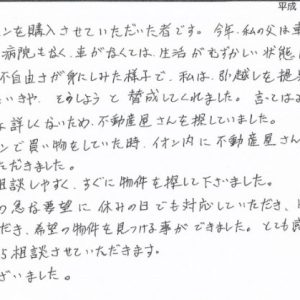 平成
ンを購入させていただいた者です。今年、私の父は車
病院もなく、車がなくては、生活がむずかしい状態
不自由さが身にしみた様子で、私は、引越しを提
いきや、そのしようと賛成してくれました。言ってはみ
詳しくないため、不動産屋さんを探していました。
ンで買い物をしていた時、イオン内に不動産屋さん
ただきました。
相談しやすく、すぐに物件を探して下さいました。
の急な要望に休みの日でも対応していただき、
だき、希望の物件を見つける事ができました。とても
ら相談させていただきます。
ざいました。